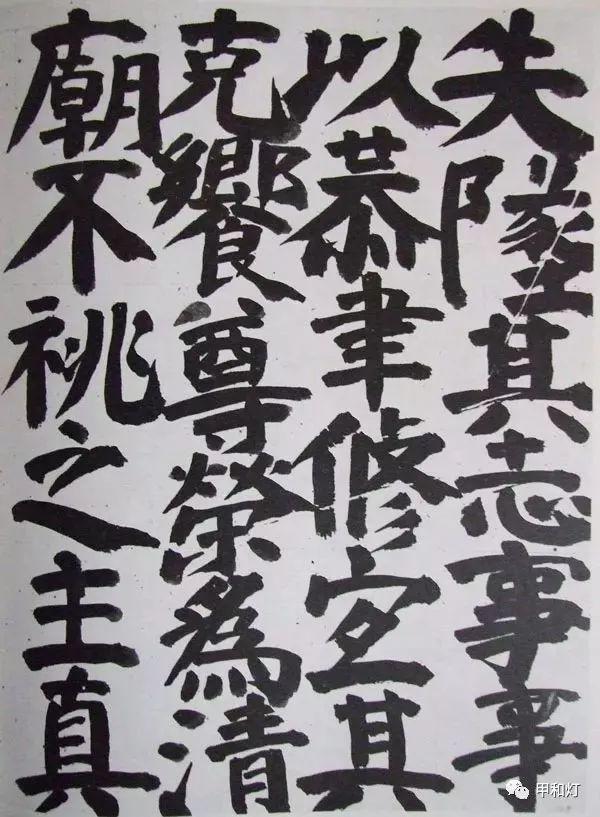 失墜其志事事
以恭聿修宜其
克饗尊榮為清
廟不祧之主真
甲和灯